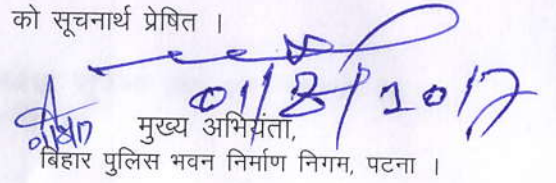 को सूचनार्थ प्रेषित ।
01/8/2017
मुख्य अभियंता,
बिहार पुलिस भवन निर्माण निगम, पटना ।